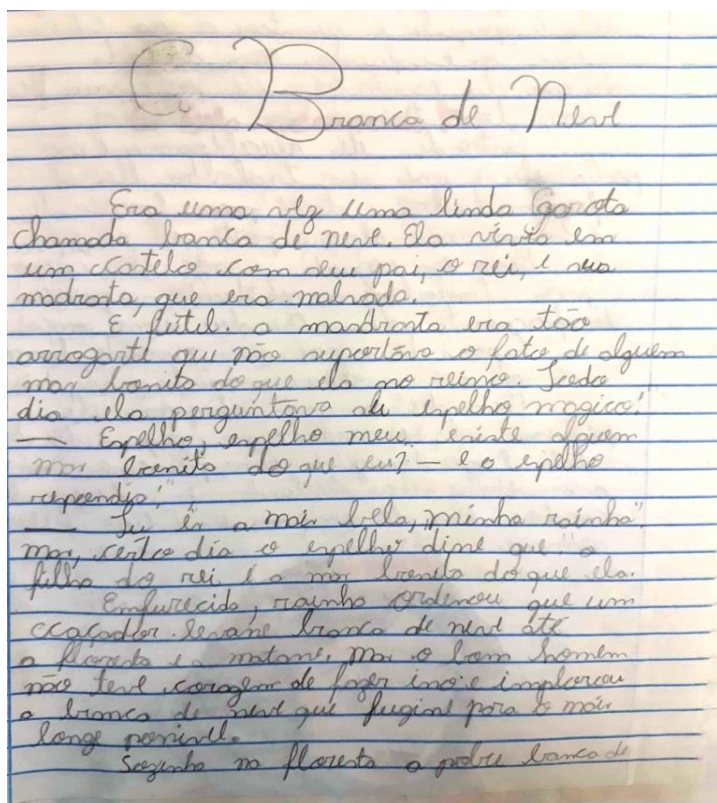 A Branca de Neve
Era uma vez uma linda garota
chamada branca de neve. Ela vivia em
um castelo com seu pai, o rei, e sua
madrasta, que era malvada.
E fútil. a madrasta era tão
arrogante que não suportava o fato de alguem
mas bonita do que ela no reino. Todo
dia ela perguntava ao espelho magico:
— Espelho, espelho meu existe alguem
mas bonita do que eu? — e o espelho
respondia:
— Tu és a mais bela, minha rainha"
mas, certo dia o espelho disse que "a
filha do rei é a mas bonita do que ela.
Emfurecida, rainha ordenou que um
caçador levasse branca de neve até
a floresta e a matasse, mas o bom homem
não teve coragem de fazer isso e implorou
a branca de neve que fugisse para o mais
longe possivel.
Sozinha na floresta a pobre branca de